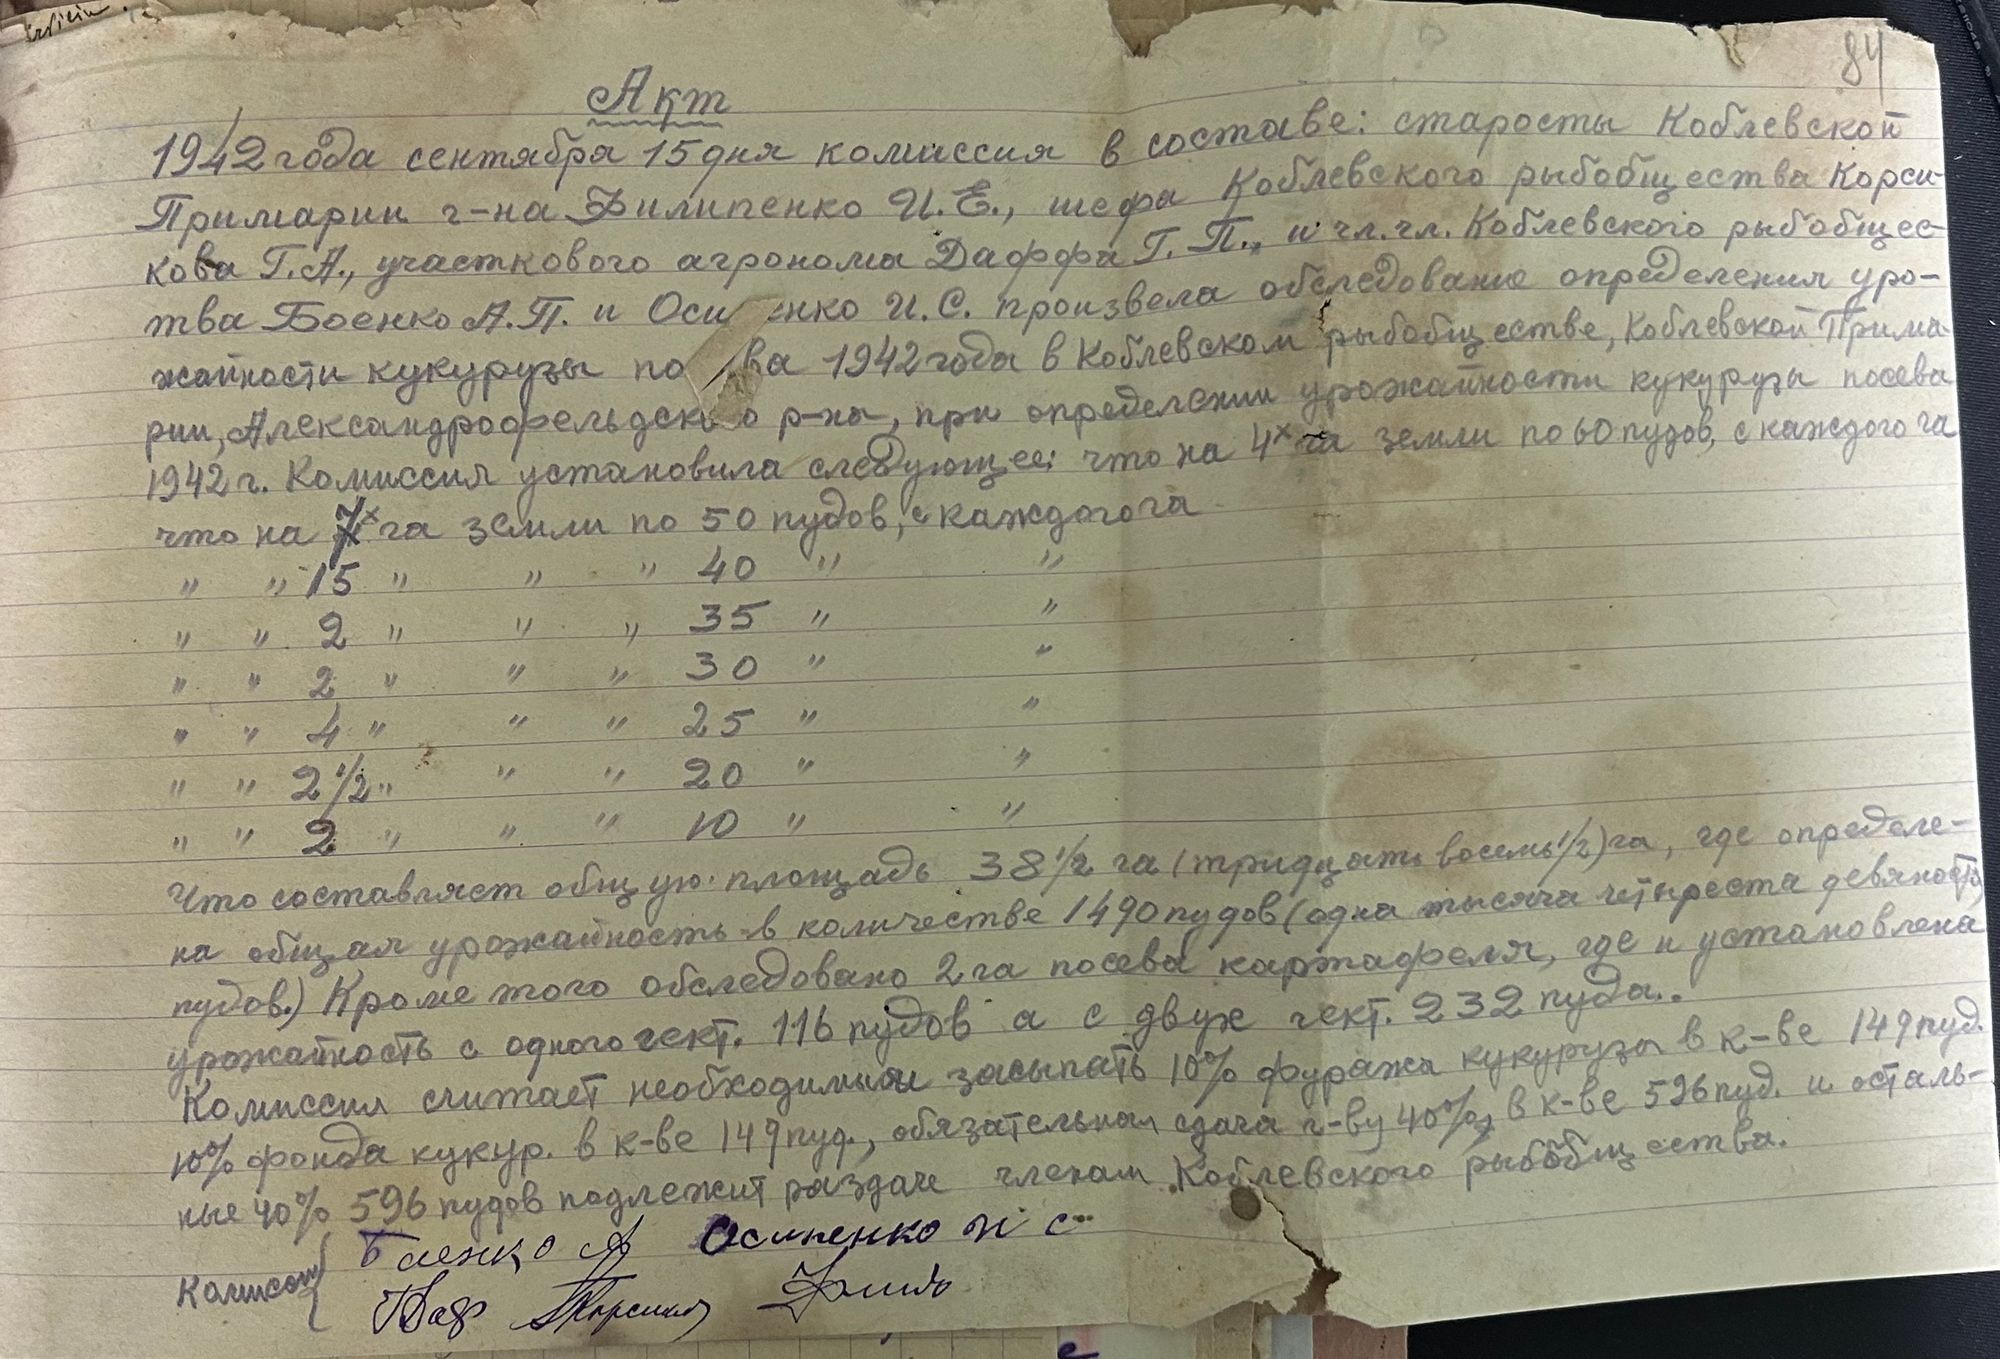 84
Акт
1942 года сентября 15 дня комиссия в составе: старосты Коблевской
Примарии г-на Филипенко И.Е., шефа Коблевского рыбобщества Корси-
кова Г.А., участкового агронома Даффа Г.П., и чл.чл. Коблевского рыбобщес-
тва Боенко А.П. и Оси енко И.С. произвела обследование определения уро-
жайности кукурузы по ва 1942 года в Коблевском рыбобществе, Коблевской Прима-
рии, Александрофельдского р-на, при определении урожайности кукурузы посева
1942 г. Комиссия установила следующее: что на 4х га земли по 60 пудов, с каждого га
что на 7х га земли по 50 пудов, с каждого га
" " 15 " " " 40 " "
" " 2 " " " 35 " "
" " 2 " " " 30 " "
" " 4 " " " 25 " "
" " 2 1/2 " " " 20 " "
" " 2 " " " 10 " "
Что составляет общую площадь 38 1/2 га (тридцать восемь 1/2) га, где определе-
на общая урожайность в количестве 1490 пудов (одна тысяча четыреста девяносто
пудов.) Кроме того обследовано 2 га посева каржафеля, где и установлена
урожайность с одного гект. 116 пудов а с двух гект. 232 пуда..
Комиссия считает необходимым засыпать 10% фуража кукурузы в к-ве 149 пуд.
10% фонда кукур. в к-ве 149 пуд., обязательная сдача г-ву 40%, в к-ве 596 пуд. и осталь-
ные 40% 596 пудов подлежит раздаче членам Коблевского рыбобщества.
Комисси Баенко А Осипенко И С
Даф Корсик Филип